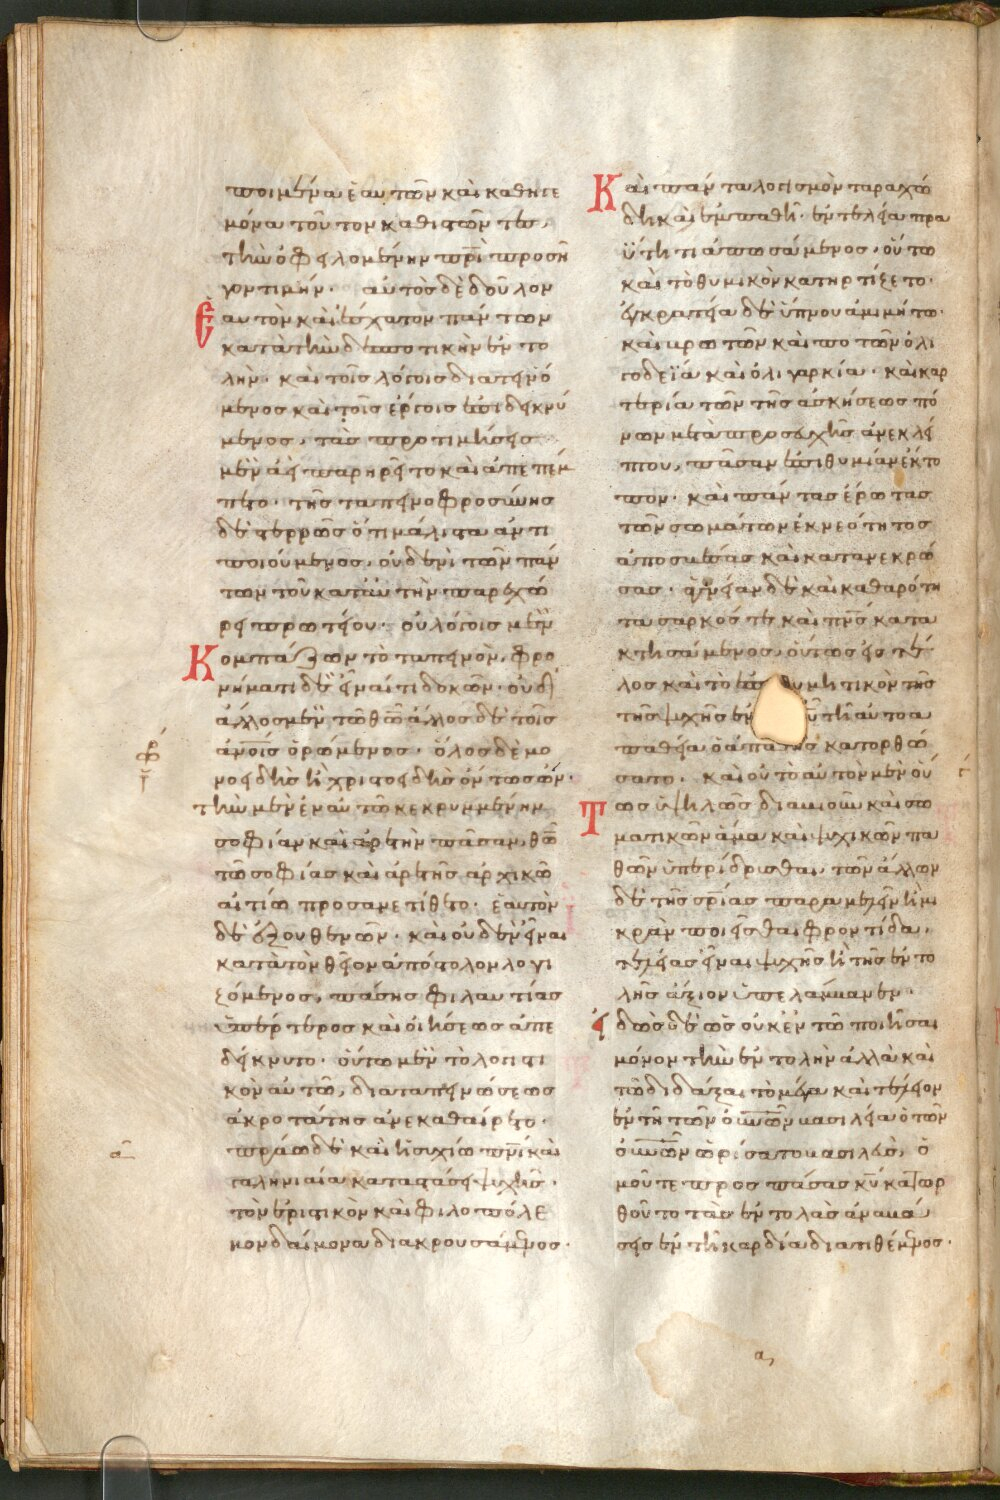 ποιμένα ἑαυτῶν καὶ καθηγε
μόνα τοῦτον καθιστῶντες,
τὴν ὀφειλομένην πρὶ προσῆ
γον τιμήν· αὐτὸς δὲ δοῦλον
ἑαυτὸν καὶ ἔσχατον πάντων
κατὰ τὴν δεσποτικὴν ἐντο
λὴν· καὶ τοῖς λόγοις διαγενό
μενος καὶ τοῖς ἔργοις ἐπιδεικνύ
μενος, τὰς προτιμήσεις
μὲν ἀεὶ παρηρεῖτο καὶ ἀπεπέμ
πετο· τῆς ταπεινοφροσύνης
δὲ στερρῶς ὅτι μάλιστα ἀντι
ποιούμενος, οὐδενὶ τῶν πάν
των τοῦ κατ' αὐτὴν παρεχώ
ρει πρωτείου· οὐ λόγοις μὲν
Κομπάζων τὸ ταπεινὸν, φρο
νήματι δὲ εἶναί τι δοκῶν· οὐδ'
ἄλλος μὲν τῶ θῶ ἄλλος δὲ τοῖς
ἀνοις ὁρώμενος· ὅλος δὲ μο
νοειδὴς ἢ χριστοειδὴς ὄντως ὤν·
τὴν μὲν ἐν αὐτῶ κεκρυμμένην
σοφίαν καὶ ἀρετὴν πᾶσαν, θῶ
τῶ σοφίας καὶ ἀρετῆς ἀρχικῶ
αἰτίω προσανετίθετο· ἑαυτὸν
δὲ ἐξουθενῶν· καὶ οὐδὲν εἶναι
κατὰ τὸν θεῖον ἀπόστολον λογι
ζόμενος, πάσης φιλαυτίας
ὑπέρτερος καὶ οἰήσεως ἀπε
δείκνυτο· οὕτω μὲν τὸ λογιστι
κὸν αὐτῶ, διὰ ταπεινώσεως
ἀκροτάτης ἀνεκαθαίρετο·
πράω δὲ καὶ ἡσυχίω πνι καὶ
γαληνιαία καταστάσει ψυχῆς·
τὸν ἐριστικὸν καὶ φιλοπόλε
μον δαίμονα διακρουσάμενος·
Καὶ πάντα λογισμὸν ταραχώ
δη καὶ ἐμπαθῆ· ἐν τελεία πρα
ΰτητι ἀπωσάμενος, οὕτω
καὶ τὸ θυμικὸν κατηρτίζετο·
ἐγκρατεία δὲ ὕπνου ἀμιμήτω·
καὶ βρωτῶν καὶ ποτῶν ὀλι
γοδεΐα καὶ ὀλιγαρκία· καὶ καρ
τερία τῶν τῆς ἀσκήσεως πό
νων μετὰ προσευχῆς ἀνεκλεί
πτου, πᾶσαν ἐπιθυμίαν ἔκτο
πον· καὶ πάντας ἔρωτας
τῶν σωμάτων ἐκ νεότητος
ἀποσμήξας καὶ κατανεκρώ
σας· ἁγνείαν δὲ καὶ καθαρότη
τα σαρκός τε καὶ πνς κατα
κτησάμενος, οὕτως εἰς τέ
λος καὶ τὸ θυμητικὸν τῆς
τῆς ψυχῆς ἐν τῆ αὐτοα
παθεία ὁ ἀπαθὴς κατορθώ
σατο· καὶ οὐ τὸ αὐτὸν μὲν οὕ
Τως ὑψηλῶς διαβιοῦν καὶ σω
ματικῶν ἅμα καὶ ψυχικῶν πα
θῶν ὑπεριδρύσθαι, τῶν ἄλλων
δὲ τῆς σρίας παραμελεῖν ἢ μι
κρὰν ποιεῖσθαι φροντίδα,
τελείας εἶναι ψυχῆς ἢ τῆς ἐντο
λῆς ἄξιον ὑπελάμβανεν·
εἰδὼς δὲ ὡς οὐκ ἐν τῶ ποιῆσαι
μόνον τὴν ἐντολὴν ἀλλὰ καὶ
τῶ διδάξαι τὸ μέγα καὶ τέλειον
ἐν τῆ τῶν οὐνῶν βασιλεία ὁ τῶν
οὐνῶν ὡρίσατο βασιλεύς, ὁ
μοῦ τε πρὸς πάσας κυ κατορ
θοῦτο τὰς ἐντολὰς ἀναβά
σεις ἐν τῆ καρδία διατιθέμενος·